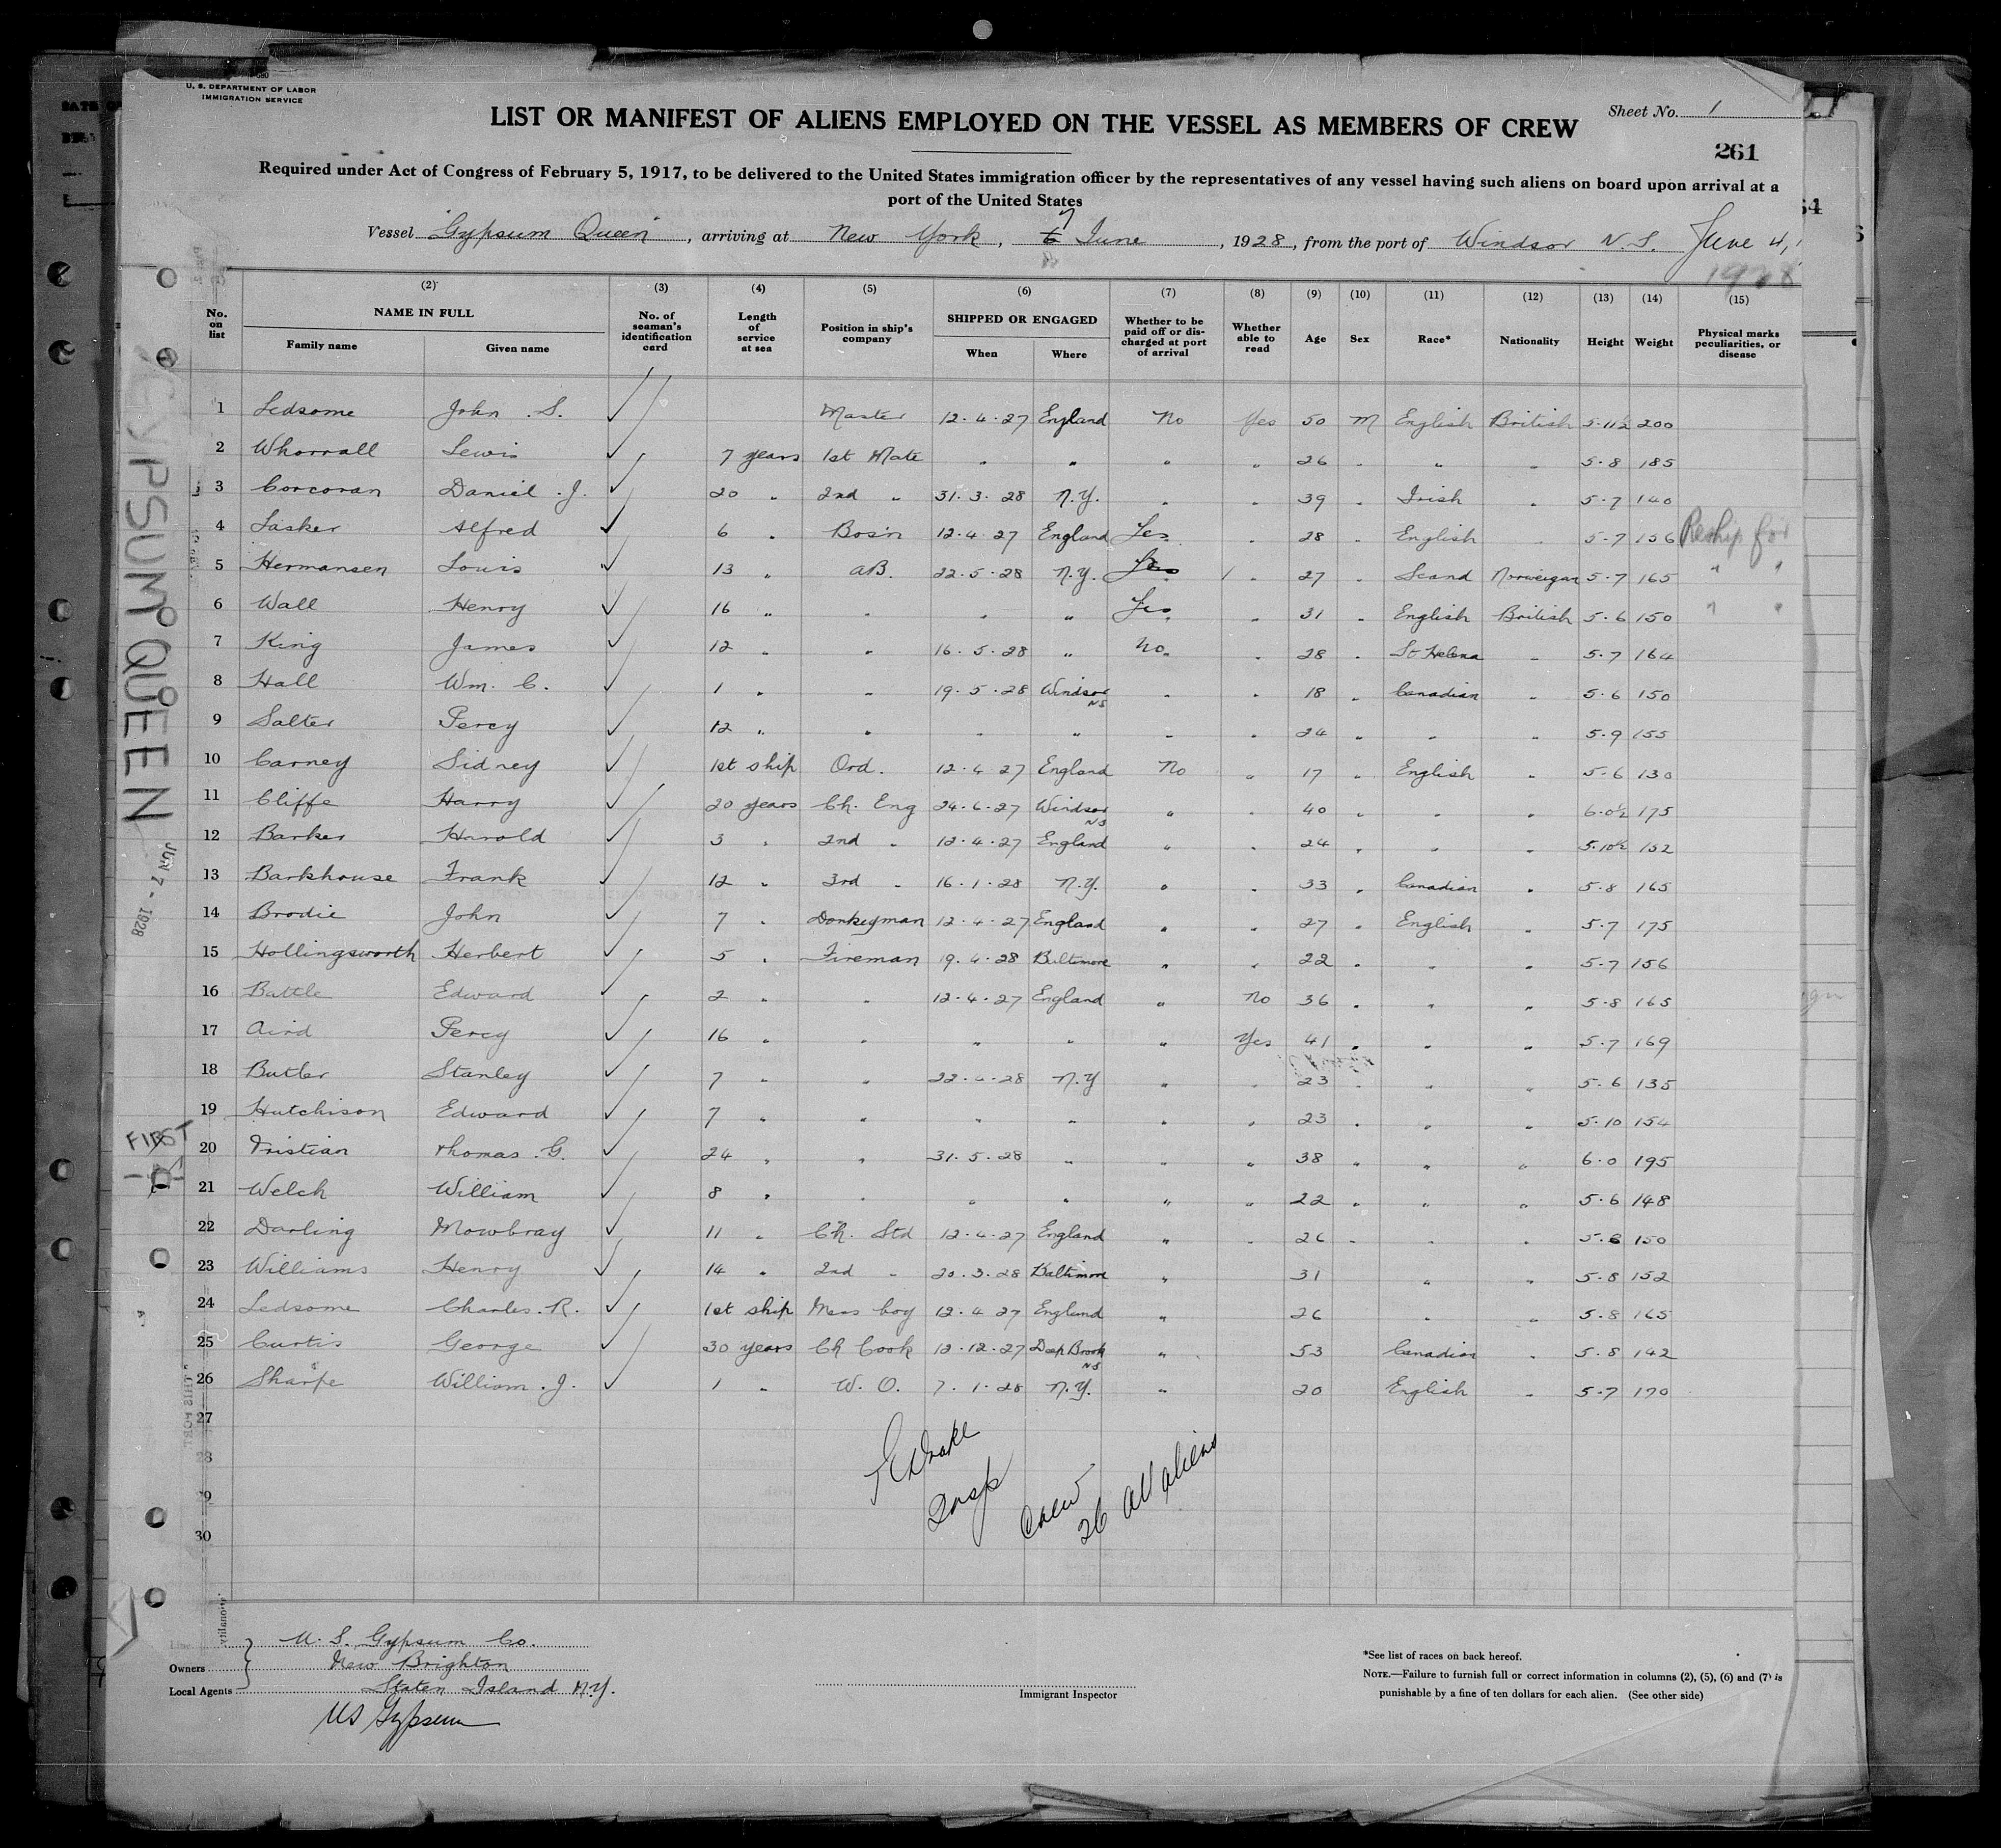 U. S. DEPARTMENT OF LABOR
IMMIGRATION SERVICE
Sheet No. 1
LIST OR MANIFEST OF ALIENS EMPLOYED ON THE VESSEL AS MEMBERS OF CREW
261
Required under Act of Congress of February 5, 1917, to be delivered to the United States immigration officer by the representatives of any vessel having such aliens on board upon arrival at a
port of the United States
Vessel Gypsum Queen, arriving at New York, 7 June, 1928, from the port of Windsor N.S. June 4, 1928
(2) (3) (4) (5) (6) (7) (8) (9) (10) (11) (12) (13) (14) (15)
No. on list NAME IN FULL Family name Given name No. of seaman's identification card Length of service at sea Position in ship's company SHIPPED OR ENGAGED When Where Whether to be paid off or discharged at port of arrival Whether able to read Age Sex Race* Nationality Height Weight Physical marks peculiarities, or disease
1 Ledsome John .S. Master 12.4.27 England No Yes 50 M English British 5.11½ 200
2 Whorrall Lewis 7 years 1st Mate " " " " 26 " " " 5.8 185
3 Corcoran Daniel .J. 20 " 2nd " 31.3.28 N.Y. " " 39 " Irish " 5.7 140
4 Lasker Alfred 6 " Bosn 12.4.27 England Yes " 28 " English " 5.7 156 Reship for
5 Hermansen Louis 13 " AB. 22.5.28 N.Y. Yes " 27 " Scand Norweigan 5.7 165 " "
6 Wall Henry 16 " " " " Yes " 31 " English British 5.6 150 " "
7 King James 12 " " 16.5.28 " No " 28 " St Helena " 5.7 164
8 Hall Wm. C. 1 " " 19.5.28 Windsor NS " " 18 " Canadian " 5.6 150
9 Salter Percy 12 " " " " " " 24 " " " 5.9 155
10 Carney Sidney 1st ship Ord. 12.4.27 England No " 17 " English " 5.6 130
11 Cliffe Harry 20 years Ch. Eng 24.6.27 Windsor NS " " 40 " " " 6.0½ 175
12 Barker Harold 3 " 2nd " 12.4.27 England " " 24 " " " 5.10½ 152
13 Barkhouse Frank 12 " 3rd " 16.1.28 N.Y. " " 33 " Canadian " 5.8 165
14 Brodie John 7 " Donkeyman 12.4.27 England " " 27 " English " 5.7 175
15 Hollingsworth Herbert 5 " Fireman 19.4.28 Baltimore " " 22 " " " 5.7 156
16 Battle Edward 2 " " 12.4.27 England " No 36 " " " 5.8 165
17 Aird Percy 16 " " " " " Yes 41 " " " 5.7 169
18 Butler Stanley 7 " " 22.4.28 N.Y " " 23 " " " 5.6 135
19 Hutchison Edward 7 " " " " " " 23 " " " 5.10 154
20 Tristian Thomas .G. 24 " " 31.5.28 " " " 38 " " " 6.0 195
21 Welch William 8 " " " " " " 22 " " " 5.6 148
22 Darling Mowbray 11 " Ch. Std 12.4.27 England " " 26 " " " 5.6 150
23 Williams Henry 14 " 2nd " 20.3.28 Baltimore " 31 " " 5.8 152
24 Ledsome Charles .R. 1st ship Mess boy 12.4.27 England " 26 " " 5.8 165
25 Curtis George 30 years Ch Cook 12.12.27 Deep Brook NS " 53 Canadian " 5.8 142
26 Sharpe William .J. 1 " W. O. 7.1.28 N.Y. " 20 English " 5.7 170
27
28
29
30
Drake
Insp
Crew
26 All aliens
GYPSUM QUEEN
JUN 7 - 1928
FIRST
Owners
Local Agents
U. S. Gypsum Co.
New Brighton
Staten Island N.Y.
US Gypsum
Immigrant Inspector
*See list of races on back hereof.
NOTE.—Failure to furnish full or correct information in columns (2), (5), (6) and (7) is
punishable by a fine of ten dollars for each alien. (See other side)